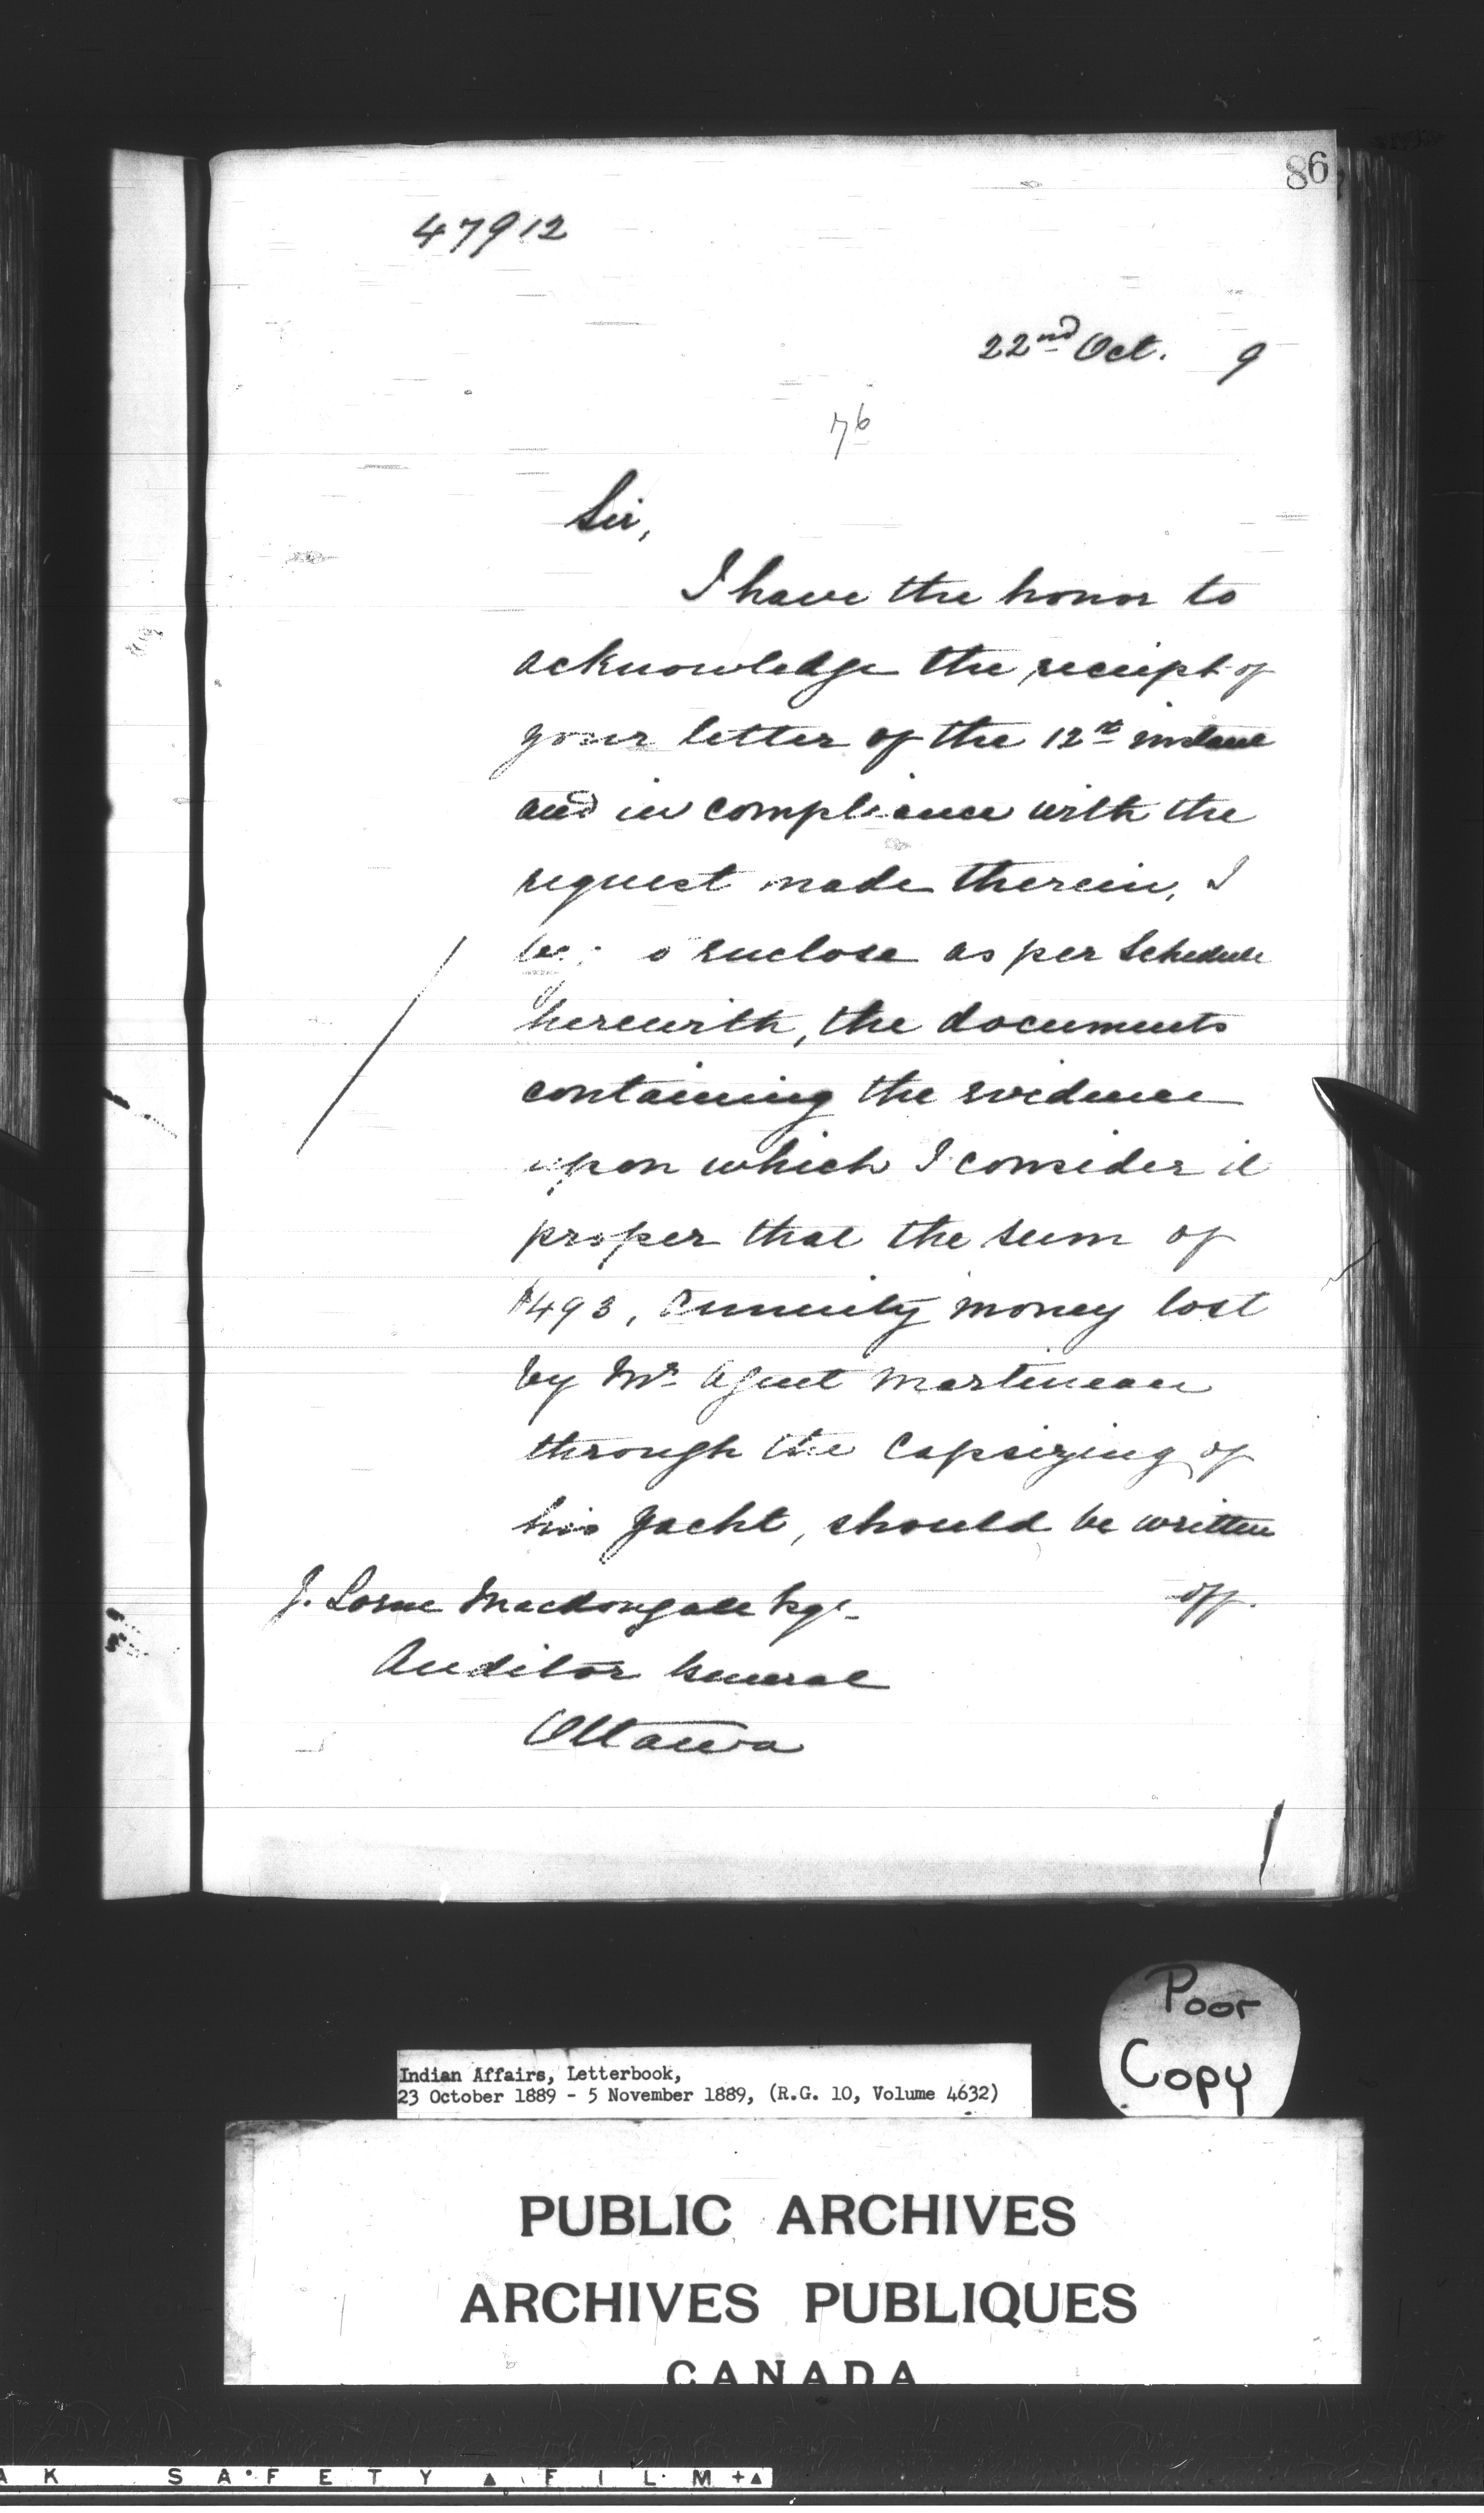 86
47912
22nd Oct. 9
76
Sir,
I have the honor to
acknowledge the receipt of
your letter of the 12th instant
and in compliance with the
request made therein, I
beg to enclose as per Schedule
herewith, the documents
containing the evidence
upon which I consider it
proper that the sum of
$493, annuity money lost
by Mr. Agent Martineau
through the capsizing of
his yacht, should be written
off.
J. Lorne Macdougall Esqr.
Auditor General
Ottawa
Poor
Copy
Indian Affairs, Letterbook,
23 October 1889 - 5 November 1889, (R.G. 10, Volume 4632)
PUBLIC ARCHIVES
ARCHIVES PUBLIQUES
CANADA
A K SAFETY FILM